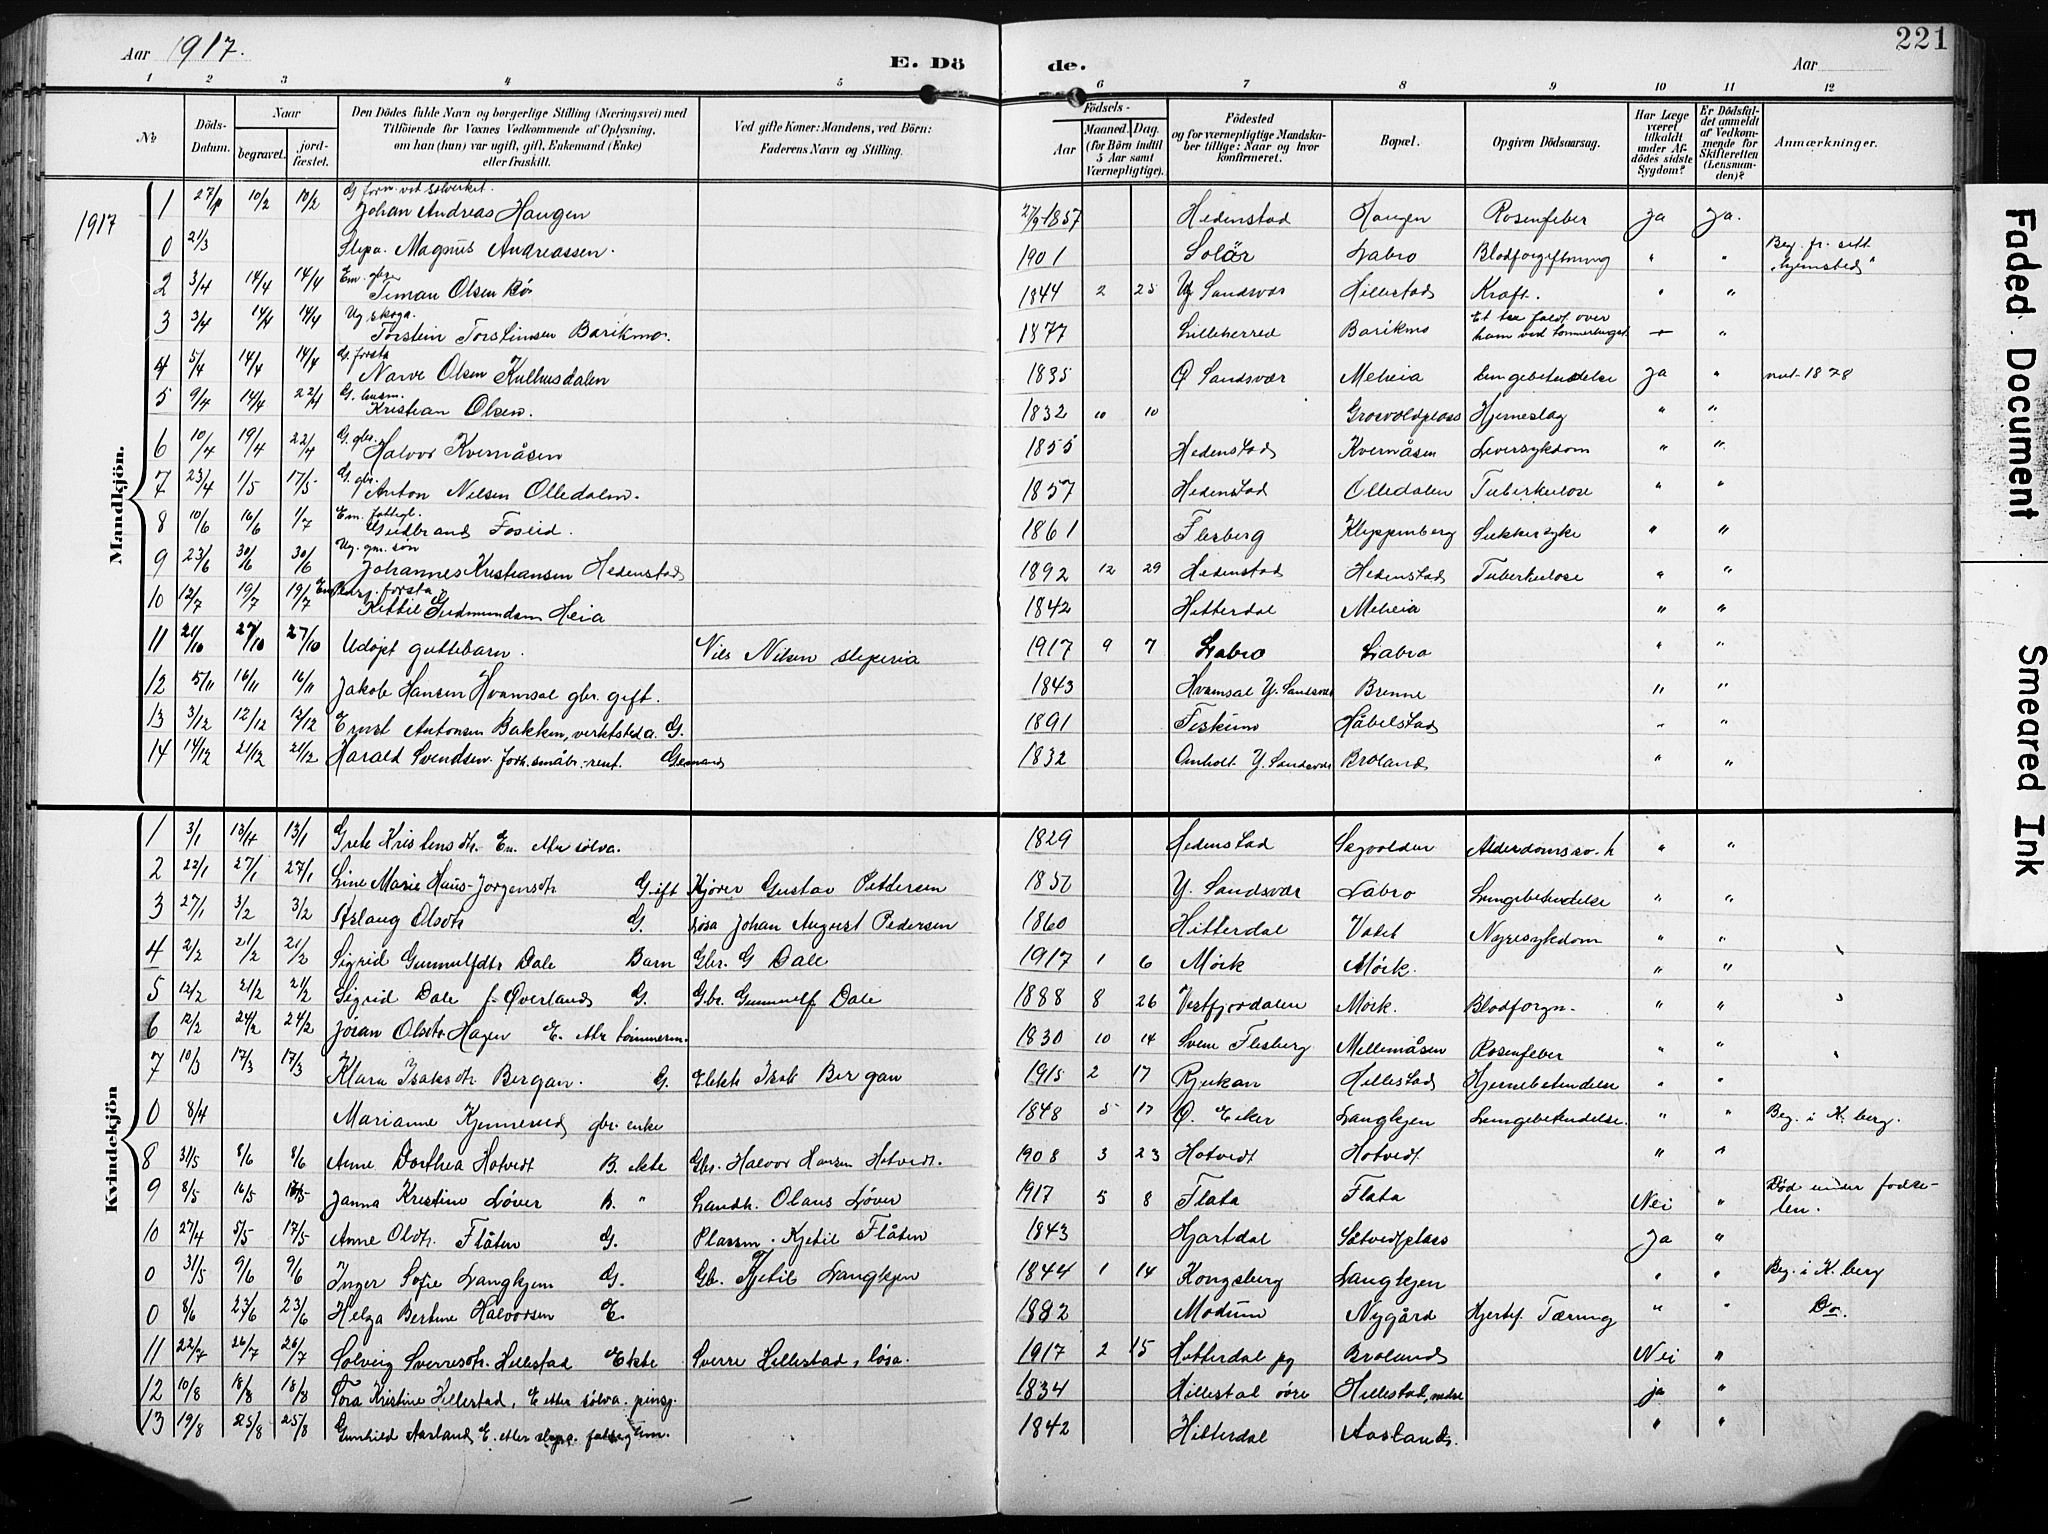 Aar 1917. E. Dö de. Aar 221
1 2 3 4 5 6 7 8 9 10 11 12
No Döds-Datum. Naar begravet. jord-fæstet. Den Dödes fulde Navn og borgerlige Stilling (Næringsvei) med Tilföiende for Voxnes Vedkommende af Oplysning, om han (hun) var ugift, gift, Enkemand (Enke) eller fraskilt. Ved gifte Koner: Mandens, ved Börn: Faderens Navn og Stilling. Födsels- Aar Maaned. Dag. (for Börn indtil 5 Aar samt Værnepligtige). Födested og for værnepligtige Mandskaber tillige: Naar og hvor konfirmeret. Bopæl. Opgiven Dödsaarsag. Har Læge været tilkaldt under Afdödes sidste Sygdom? Er Dödsfaldet anmeldt af Vedkommende for Skifteretten (Lensmanden)? Anmærkninger.
Faded Document
Smeared Ink
Mandkjön.
1917
1 10/2 10/2 G. form. ved sølverket. Johan Andreas Haugen 1857 Hedenstad Haugen Rosenfeber Ja Ja.
0 21/3 Slipa. Magnus Andreassen. 1901 Solör Labro Blodforgiftning " " Beg. fr. sitt "hjemsted"
2 3/4 14/4 14/4 Em. gbr. Timan Olsen Bö 1844 2 25 Y Sandsvær Hillestad Kraft. " "
3 3/4 14/4 14/4 Ug. skoga. Torstein Torsteinsen Barikmo. 1877 Lilleherred Barikmo Et træ faldt over ham ved tømmerhugst + "
4 5/4 14/4 14/4 G. forsta Narve Olsen Kulhusdalen 1835 Ø Sandsvær Meheia Lungebetendelse Ja " nat. 1878
5 9/4 14/4 22/4 G. husm. Kristian Olsen. 1832 10 10 Grosvoldplass Hjerneslag " "
6 10/4 19/4 22/4 G. gbr. Halvor Kvernåsen 1855 Hedenstad Kvernåsen Leversykdom " "
7 23/4 1/5 17/5 G. gbr. Anton Nilsen Olledalen. 1857 Hedenstad Olledalen Tuberkulose " "
8 10/6 16/6 1/7 Em. fattigl. Gudbrand Foslid. 1861 Flesberg Kleppenberg Sukkersyke " "
9 23/6 30/6 30/6 Ug. gm. søn Johannes Kristiansen Hedenstad 1892 12 29 Hedenstad Hedenstad Tuberkulose " "
10 12/7 19/7 19/7 forsta Kittil Gudmundsen Heia 1842 Hitterdal Meheia " "
11 21/10 27/10 27/10 Udøpt guttebarn. Nils Nilsen sliperia 1917 9 7 Labro Labro " "
12 5/11 16/11 16/11 Jakob Hansen Hvamsal gbr. gift. 1843 Hvamsal Y. Sandsvær Brenne " "
13 3/12 12/12 12/12 Ernst Antonsen Bakken, verksteda. G. 1891 Fiskum Håbelstad " "
14 14/12 21/12 21/12 Harald Svendsen forh. småbr.-rent. 1832 Omholt Y. Sandsvær Broland " "
Kvindekjön
1 3/1 13/1 Grete Kristensdtr. En. etter sølva. 1829 Hedenstad Segvolden Alderdomssv.h " "
2 22/1 27/1 27/1 Line Marie Hans-Jorgensdtr Gift Kjører Gustav Pettersen Y. Sandsvær Labro Lungebetendelse " "
3 27/1 3/2 3/2 Aslaug Olsdtr G. Løsa Johan August Pedersen 1860 Hitterdal Vatet Nyresykdom " "
4 2/2 21/2 21/2 Sigrid Gunnulfdtr Dale Barn Gbr. G Dale 1917 1 6 Mörk Mörk. " "
5 12/2 21/2 21/2 Sigrid Dale f. Øverland G. Gbr. Gunnulf Dale 1888 8 26 Vestfjordalen Mörk. Blodforgn. " "
6 12/2 24/2 24/2 Jöran Olsdtr Hagen E. etter tömmerm. 1830 10 14 Svene Flesberg Mellemåsen Rosenfeber " "
7 10/3 17/3 17/3 Klara Isaksdtr. Bergan. G. Elekt. Isak Bergan 1915 2 17 Rjukan Hillestad Hjernebetendelse " "
0 8/4 Marianne Kjennerud gbr. enke 1848 5 17 Ø. Eiker Langkjen Lungebetendelse. " " Beg. i K.berg.
8 31/5 8/6 8/6 Anne Dorthea Hotvedt B. ekte Gbr. Halvor Hansen Hotvedt. 1908 3 23 Hotvedt Hotvedt " "
9 8/5 16/5 Janna Kristine Løver B. " Landh. Olaus Løver 1917 5 8 Flata Flata Nei " Död under fødselen.
10 27/4 5/5 17/5 Anne Olsdtr. Flåten G. Plassm. Kjetil Flåten 1843 Hjartdal Såtvedtplass Ja "
0 31/5 9/6 9/6 Inger Sofie Langkjen G. Gb. Kjetil Langkjen 1844 1 14 Kongsberg Langkjen " " Beg. i K.berg
0 8/6 23/6 23/6 Helga Bertine Halvorsen E. 1882 Modum Nygård Hjertef. Tæring " " Do.
11 22/7 26/7 26/7 Solveig Sverresdtr. Hillestad Ekte Sverre Hillestad, løsa. 1917 2 15 Hitterdal pg Broland Nei "
12 10/8 18/8 18/8 Tora Kristine Hillestad, E etter sølva. pensj. 1834 Hillestad øvre Hillestad, nedre ja "
13 19/8 25/8 25/8 Gunhild Aasland E. etter slipa. fattiglem. 1842 Hitterdal Aasland. " "